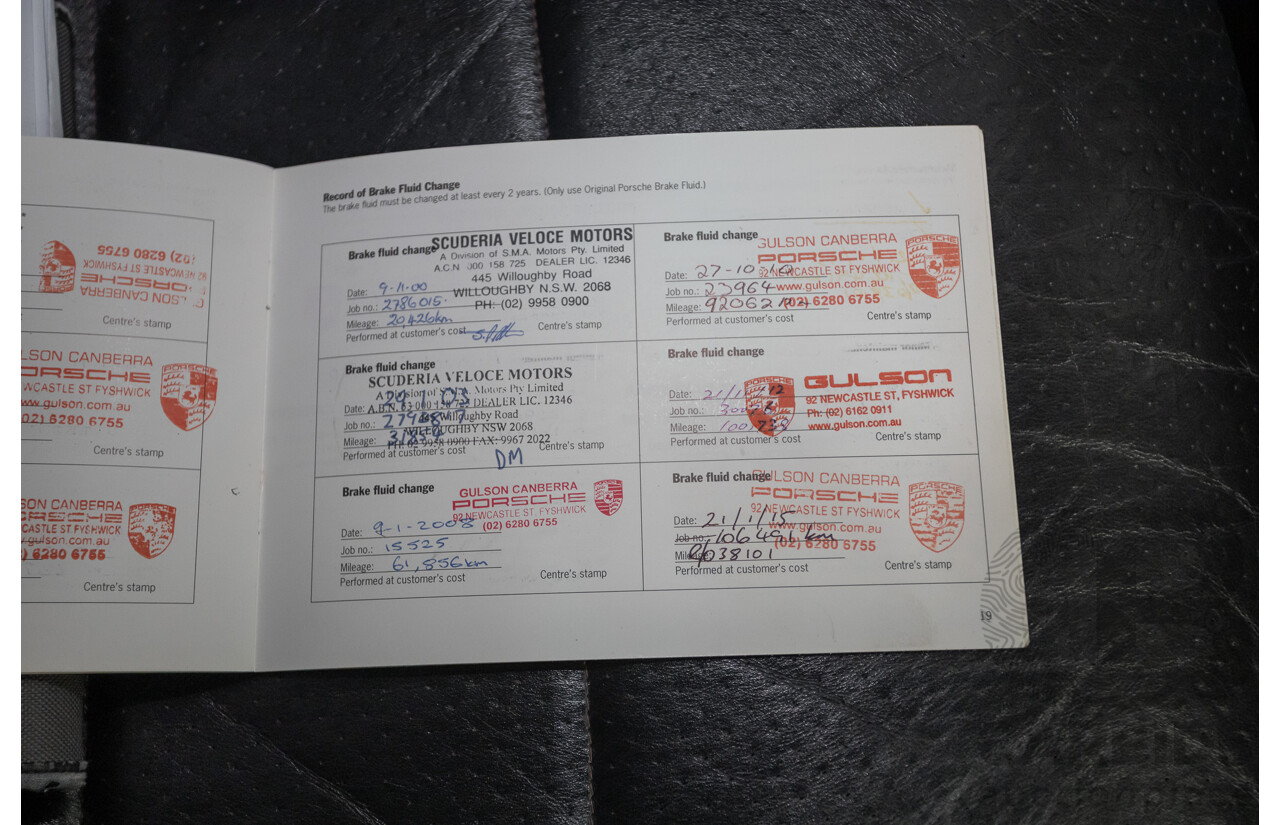 (02) 6280 6755
92 NEWCASTLE ST FYSHWICK
PORSCHE
LSON CANBERRA
Centre's stamp
LSON CANBERRA
ORSCHE
WCASTLE ST, FYSHWICK
ww.gulson.com.au
02) 6280 6755
PORSCHE
Centre's stamp
SON CANBERRA
ORSCHE
CASTLE ST, FYSHWICK
.gulson.com.au
) 6280 6755
Centre's stamp
Record of Brake Fluid Change
The brake fluid must be changed at least every 2 years. (Only use Original Porsche Brake Fluid.)
Brake fluid change
SCUDERIA VELOCE MOTORS
A Division of S.M.A. Motors Pty. Limited
A.C.N 000 158 725 DEALER LIC. 12346
445 Willoughby Road
WILLOUGHBY N.S.W. 2068
PH: (02) 9958 0900
Date: 9-11-00
Job no.: 2786015
Mileage: 20,426km
Performed at customer's cost
Centre's stamp
Brake fluid change
SCUDERIA VELOCE MOTORS
A Division of S.M.A. Motors Pty Limited
DEALER LIC. 12346
Willoughby Road
WILLOUGHBY NSW 2068
PH: 02 9958 0900 FAX: 9967 2022
Date:
Job no.:
Mileage:
Performed at customer's cost
Centre's stamp
DM
Brake fluid change
GULSON CANBERRA
PORSCHE
92 NEWCASTLE ST, FYSHWICK
(02) 6280 6755
Date: 9-1-2008
Job no.: 15525
Mileage: 61,856km
Performed at customer's cost
Centre's stamp
Brake fluid change
GULSON CANBERRA
PORSCHE
92 NEWCASTLE ST FYSHWICK
www.gulson.com.au
(02) 6280 6755
PORSCHE
Date: 27-10-10
Job no.: 23964
Mileage: 92062
Performed at customer's cost
Centre's stamp
Brake fluid change
PORSCHE
GULSON
92 NEWCASTLE ST, FYSHWICK
Ph: (02) 6162 0911
www.gulson.com.au
Date: 21/11/12
Job no.:
Mileage:
Performed at customer's cost
Centre's stamp
Brake fluid change
GULSON CANBERRA
PORSCHE
92 NEWCASTLE ST, FYSHWICK
www.gulson.com.au
(02) 6280 6755
PORSCHE
Date: 21/1/15
Job no.: 106491 km
Mileage: 038101
Performed at customer's cost
Centre's stamp
19